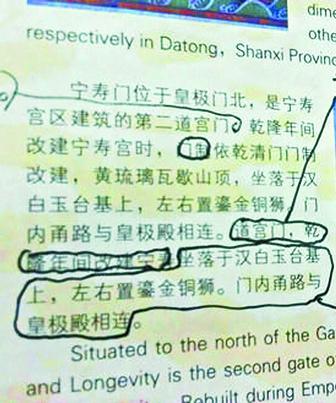 dime
respectively in Datong, Shanxi Provinc
othe
宁寿门位于皇极门北，是宁寿
宫区建筑的第二道宫门。乾隆年间
改建宁寿宫时，门制依乾清门门制
改建，黄琉璃瓦歇山顶，坐落于汉
白玉台基上，左右置鎏金铜狮。门
内甬路与皇极殿相连。道宫门，乾
隆年间改建宁寿坐落于汉白玉台基
上，左右置鎏金铜狮。门内甬路与
皇极殿相连。
Situated to the north of the Ga
and Longevity is the second gate o
Rebuilt during Empe